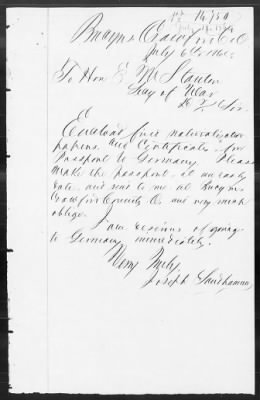 No 16750
July 11, 186
Bucyrus Crawford Co O
July 6th 186
To Hon E M Stanton
Secy of War
D. C. Sir.
Enclosed find naturalization
papers, and Certificate for
Passport to Germany. Please
make the passport, at an early
date, and send to me at Bucyrus
Crawford County O. and very much
oblige.
I am desirous of going
to Germany immediately.
Very Truly,
Joseph